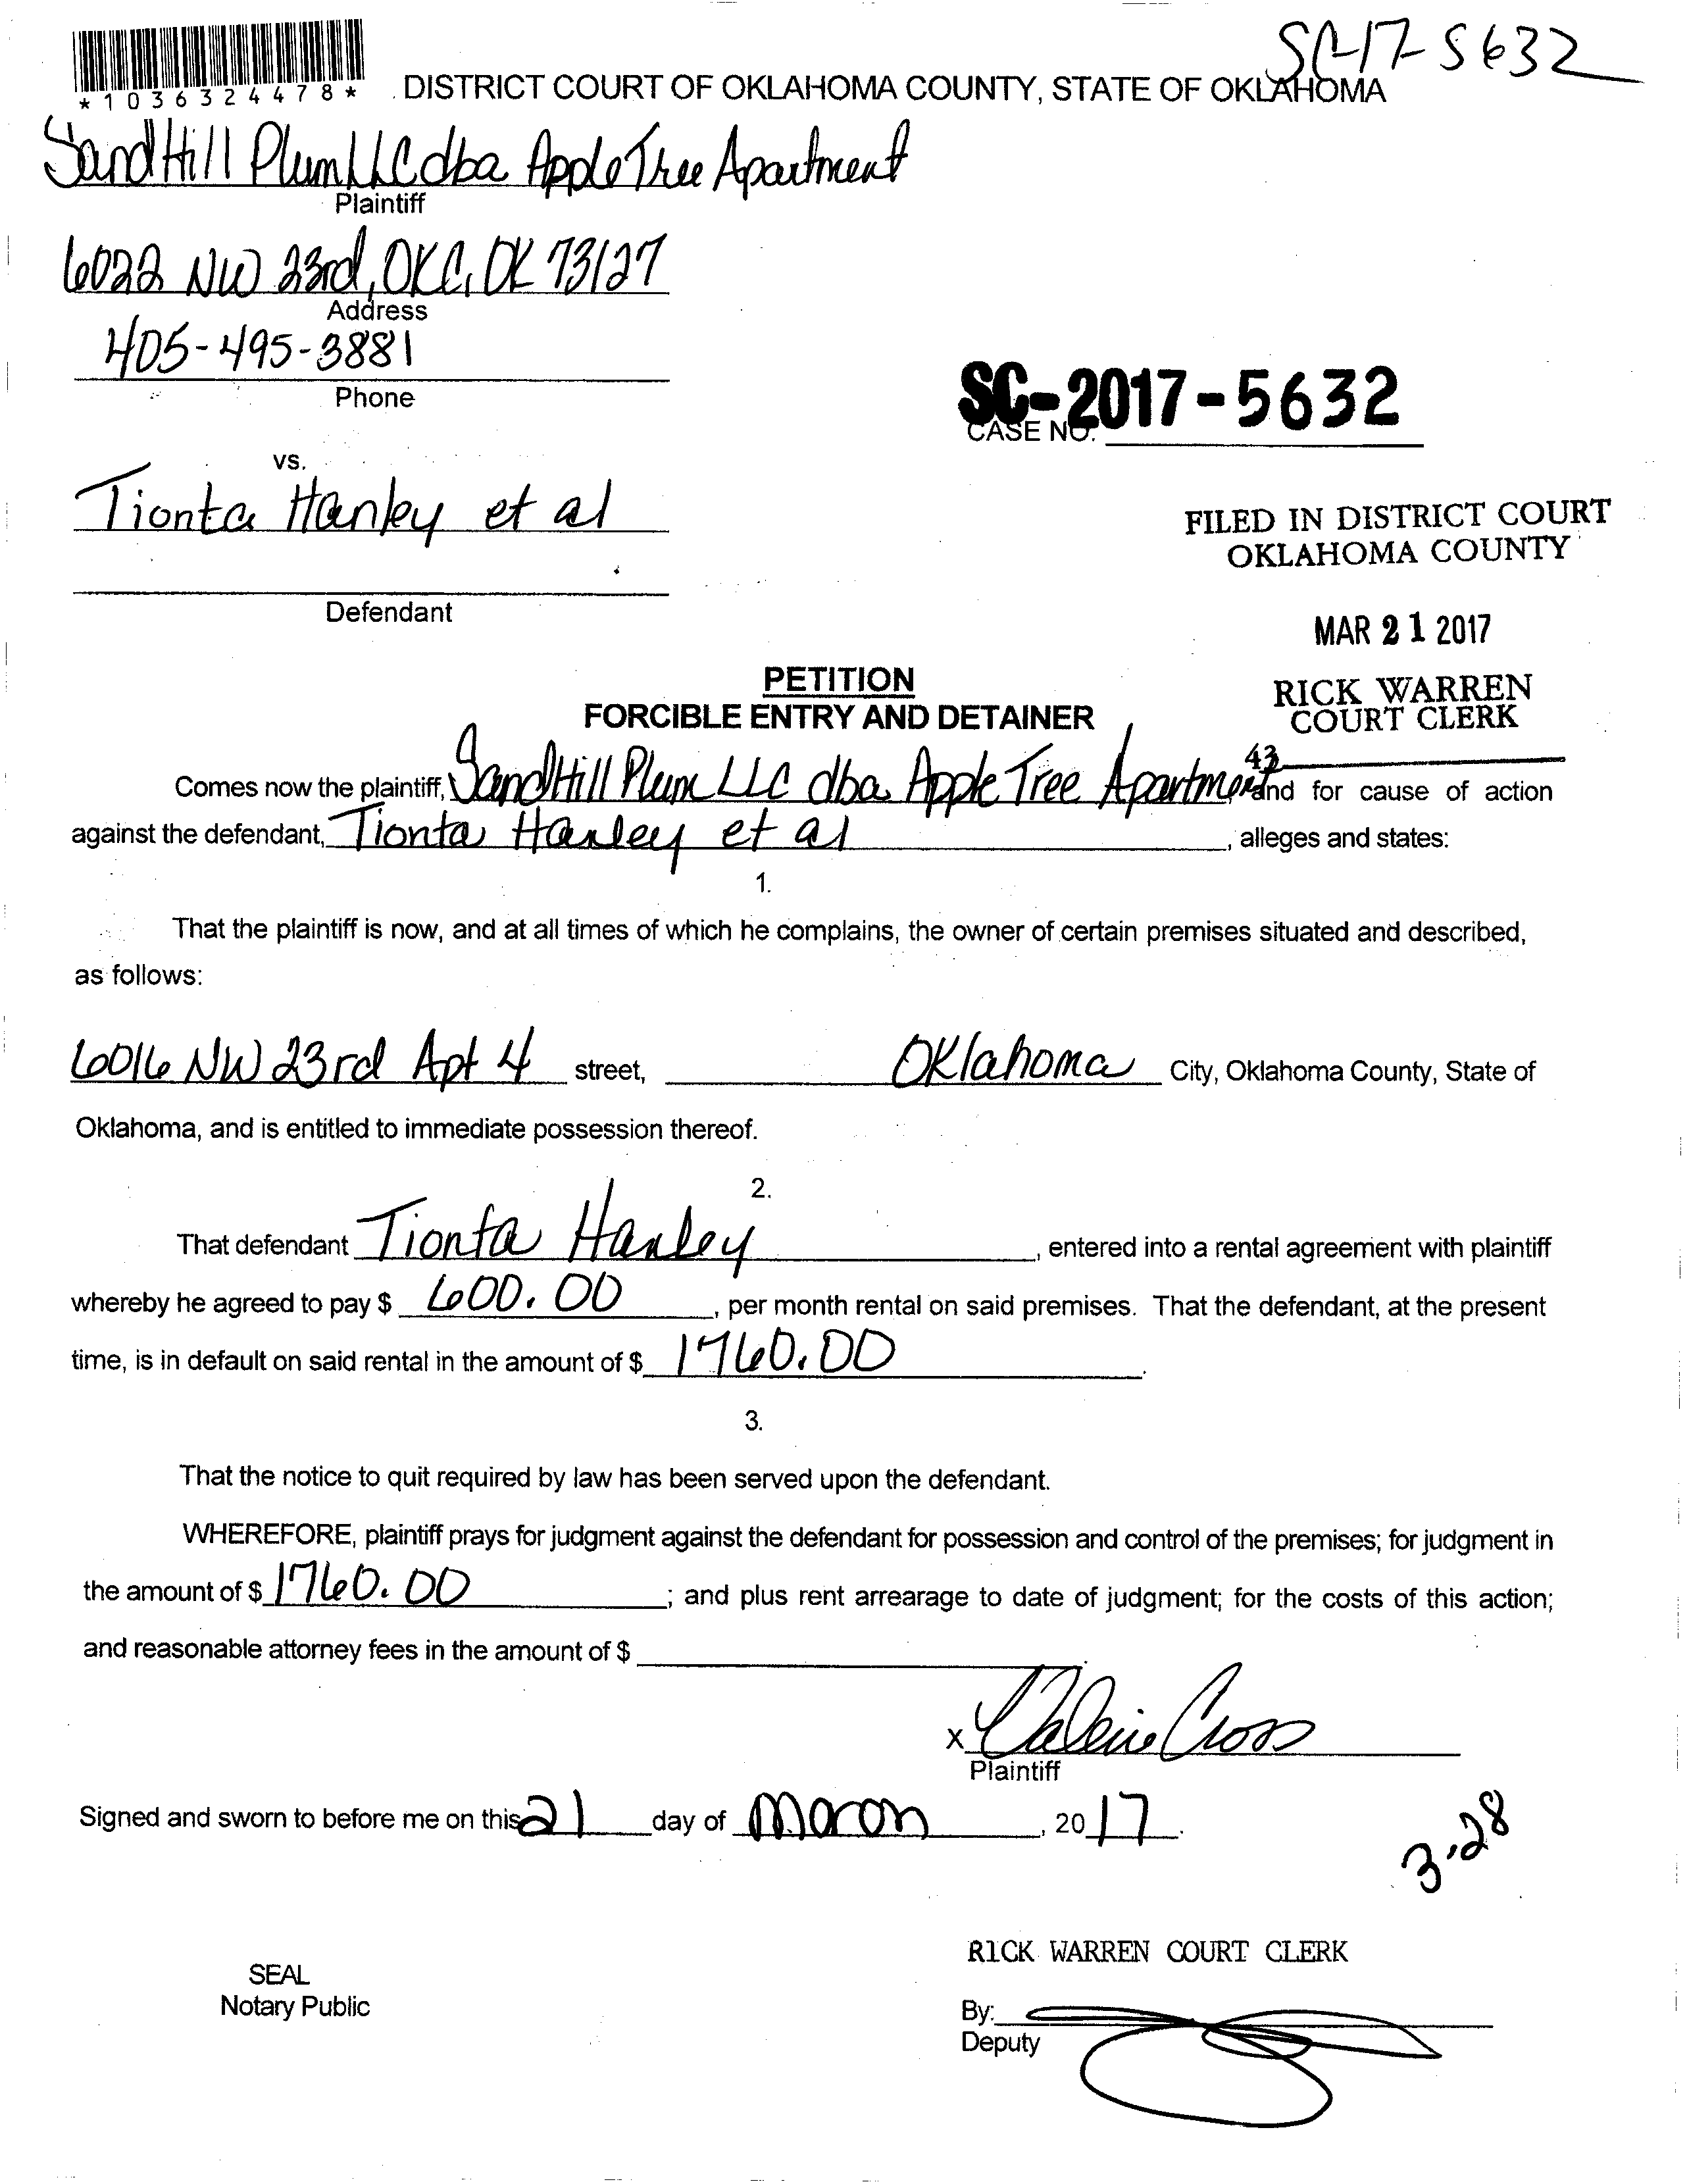 SC-17-5632
*1036324478*
DISTRICT COURT OF OKLAHOMA COUNTY, STATE OF OKLAHOMA
SandHill Plum LLC dba Apple Tree Apartment
Plaintiff
6022 NW 23rd, OKC, OK 73127
Address
405-495-3881
Phone
SC-2017-5632
CASE NO.
vs.
Tionta Hanley et al
Defendant
FILED IN DISTRICT COURT
OKLAHOMA COUNTY
MAR 21 2017
RICK WARREN
COURT CLERK
43
PETITION
FORCIBLE ENTRY AND DETAINER
Comes now the plaintiff, SandHill Plum LLC dba Apple Tree Apartment and for cause of action
against the defendant, Tionta Hanley et al, alleges and states:
1.
That the plaintiff is now, and at all times of which he complains, the owner of certain premises situated and described,
as follows:
6016 NW 23rd Apt 4 street, Oklahoma City, Oklahoma County, State of
Oklahoma, and is entitled to immediate possession thereof.
2.
That defendant Tionta Hanley, entered into a rental agreement with plaintiff
whereby he agreed to pay $ 600.00, per month rental on said premises. That the defendant, at the present
time, is in default on said rental in the amount of $ 1760.00.
3.
That the notice to quit required by law has been served upon the defendant.
WHEREFORE, plaintiff prays for judgment against the defendant for possession and control of the premises; for judgment in
the amount of $ 1760.00; and plus rent arrearage to date of judgment; for the costs of this action;
and reasonable attorney fees in the amount of $
X Valerie Cross
Plaintiff
Signed and sworn to before me on this 21 day of March, 2017.
3.28
RICK WARREN COURT CLERK
SEAL
Notary Public
By:
Deputy